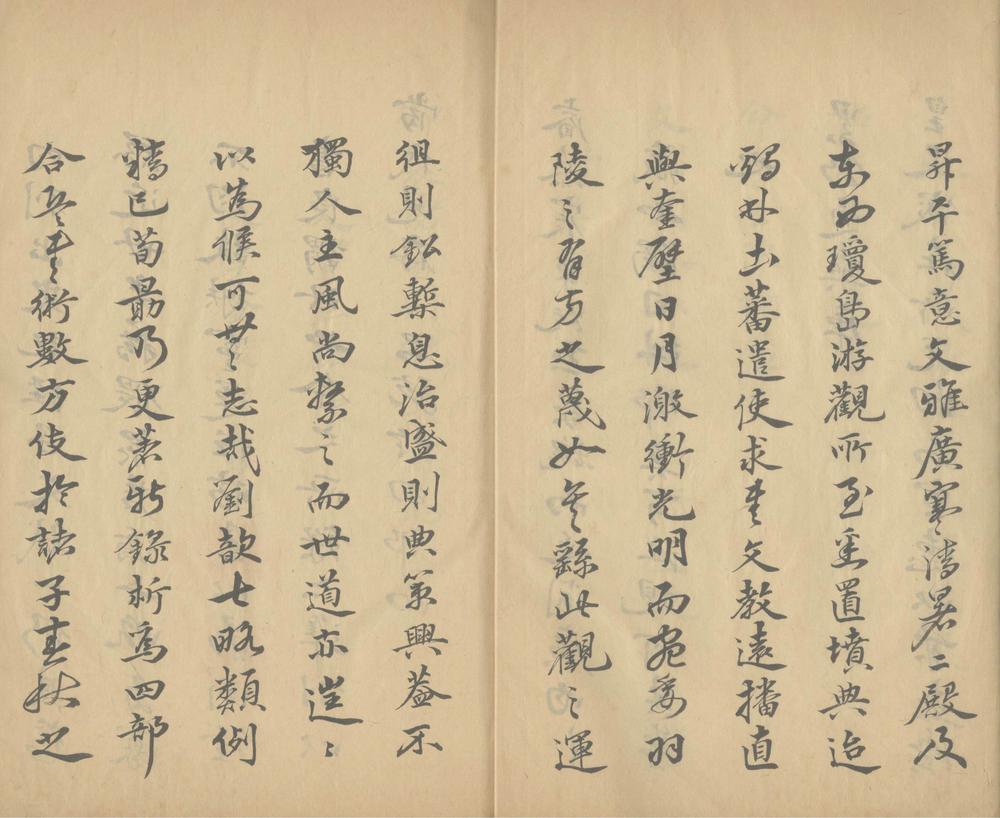 昇平篤意文雅廣寒清暑二殿及
東西瓊島游觀所至悉置墳典迨
弱水土蕃遣使求書文教遠播直
與奎壁日月激衝光明而宛委羽
陵之有方之蔑如矣繇此觀之運
徂則鉛槧息治盛則典策興蓋不
獨人主風尚繫之而世道亦往往
以為候可無志哉劉歆七略類例
精已荀勗乃更著新錄析為四部
合兵書術數方伎於諸子春秋之